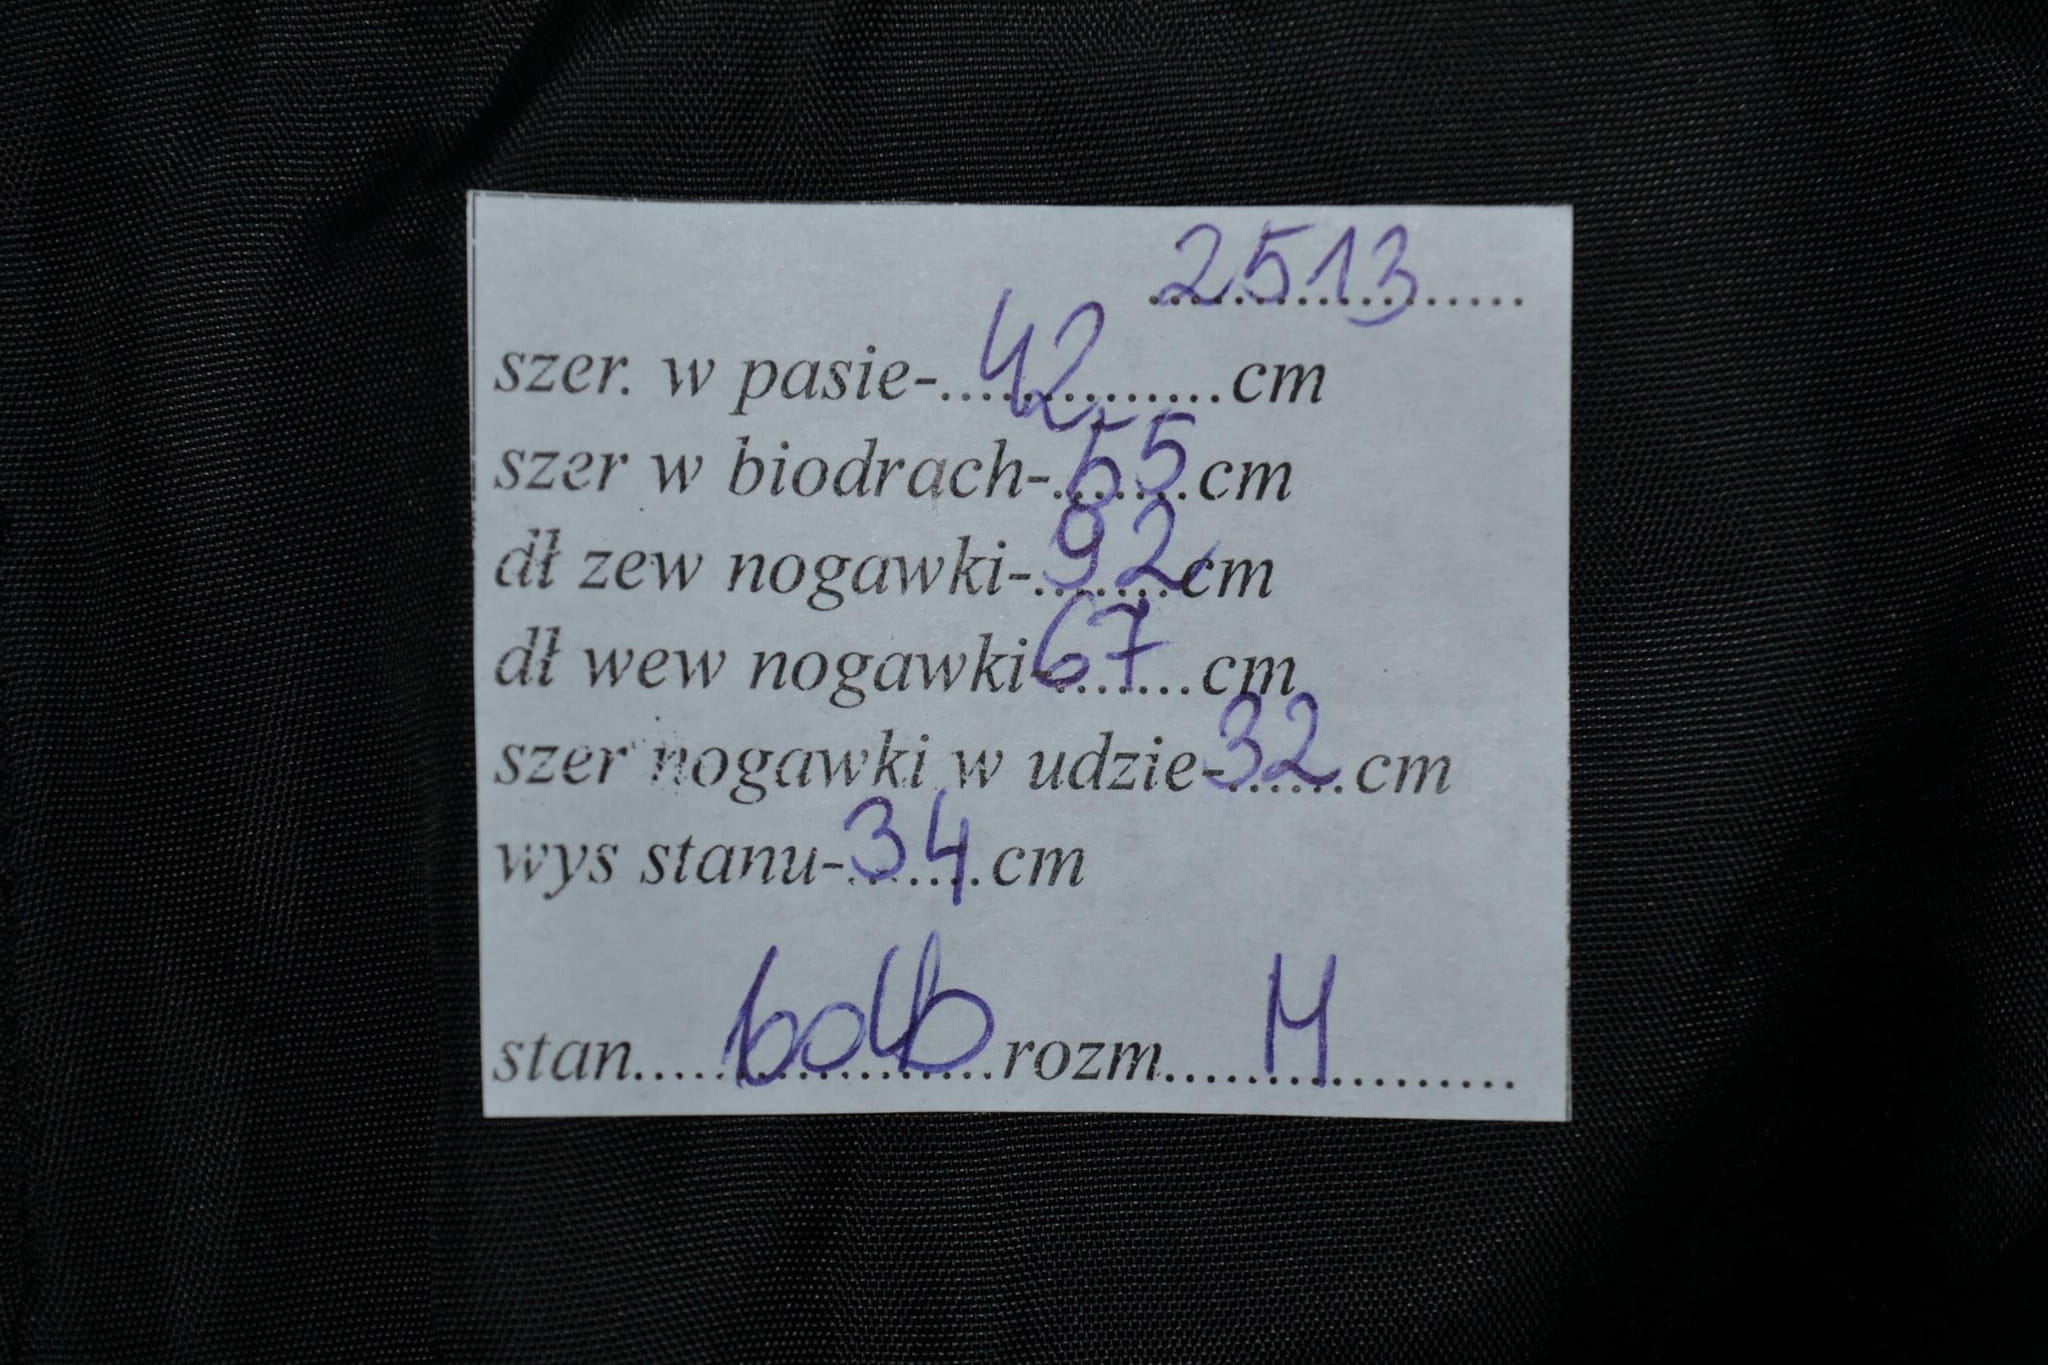 2513
szer. w pasie-...42...cm
szer w biodrach-...55...cm
dł zew nogawki-...92...cm
dł wew nogawki-67...cm
szer nogawki w udzie-32...cm
wys stanu-34...cm
stan... rozm...M...